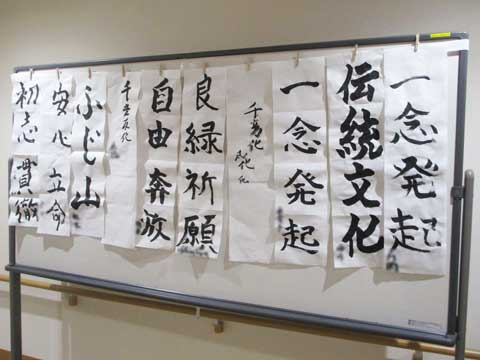 一念発起
伝統文化
一念発起
良緑祈願
自由奔放
ふじ山
安心立命
初志貫徹